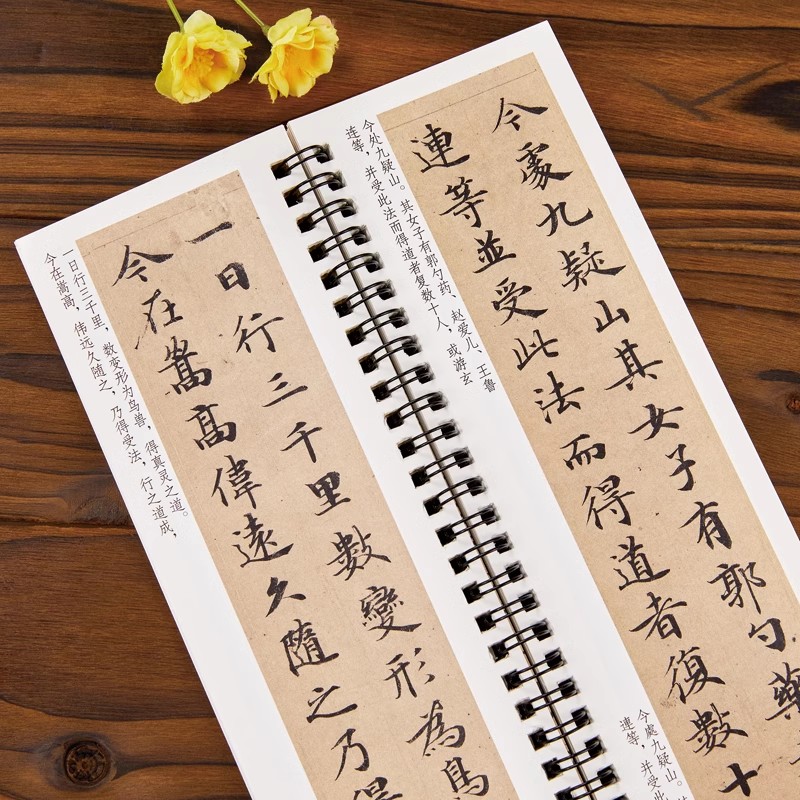 一日行三千里數變形為鳥
今在嵩高偉遠久隨之乃得
一日行三千里，数变形为鸟兽，得真灵之道。
今在嵩高，伟远久随之，乃得受法，行之道成，
今處九疑山其女子有郭勺藥
連等並受此法而得道者復數十
今处九疑山。其女子有郭勺药、赵爱儿、王鲁
连等，并受此法而得道者复数十人，或游玄
今處九疑山。
連等，并受此